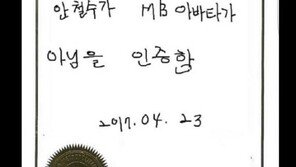 안철수가 MB 아바타가
아님을 인증함
2017.04.23